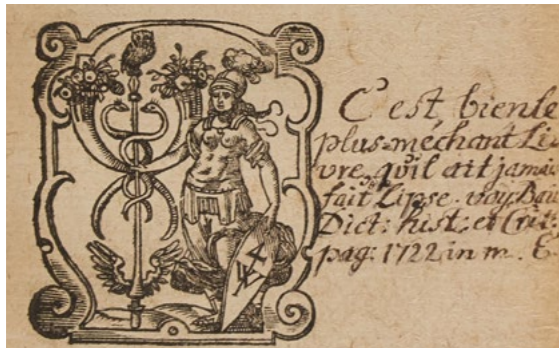 C'est bien le
plus méchant Li-
vre, qu'il ait jamai
fait Lipse. voy. Bai
Dict: hist: et Crit.
pag: 1722 in m. E